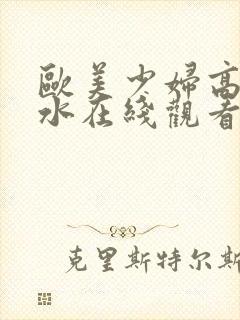 歐美少婦高
水在綫觀看
克里斯特尔斯